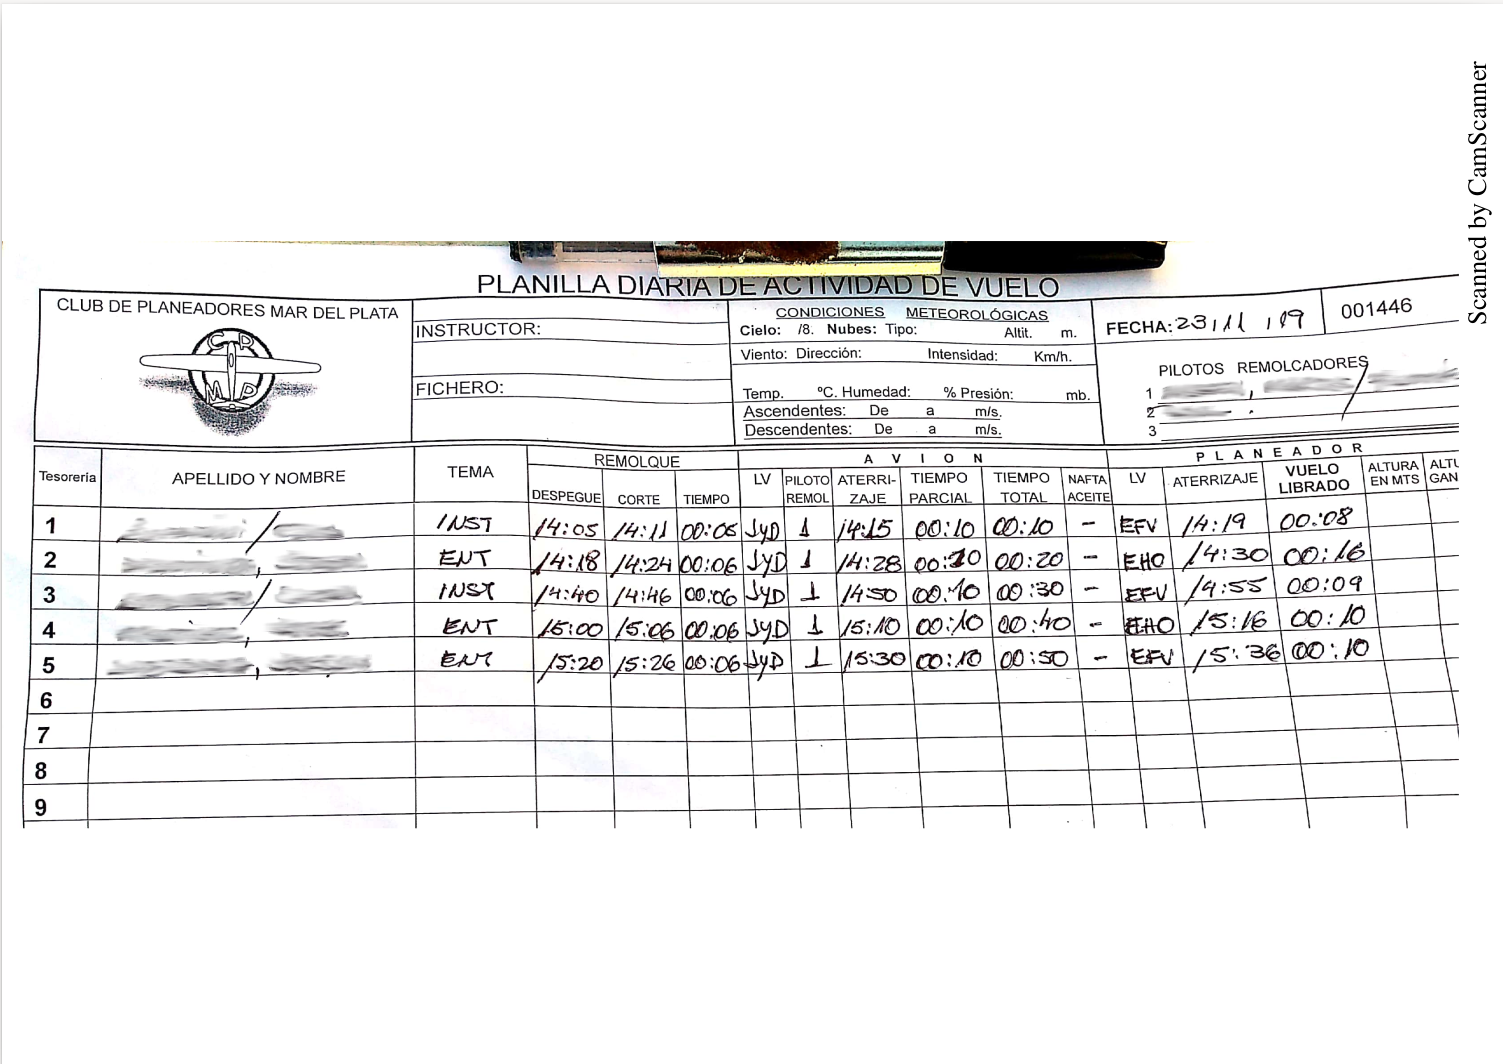 Scanned by CamScanner
PLANILLA DIARIA DE ACTIVIDAD DE VUELO
CLUB DE PLANEADORES MAR DEL PLATA
C P
M D P
INSTRUCTOR:
FICHERO:
CONDICIONES METEOROLÓGICAS
Cielo: /8. Nubes: Tipo: Altit. m.
Viento: Dirección: Intensidad: Km/h.
Temp. ºC. Humedad: % Presión: mb.
Ascendentes: De a m/s.
Descendentes: De a m/s.
FECHA: 23/11/19
001446
PILOTOS REMOLCADORES
1
2
3
Tesorería APELLIDO Y NOMBRE TEMA REMOLQUE AVION PLANEADOR
DESPEGUE CORTE TIEMPO LV PILOTO REMOL ATERRI-ZAJE TIEMPO PARCIAL TIEMPO TOTAL NAFTA ACEITE LV ATERRIZAJE VUELO LIBRADO ALTURA EN MTS ALTU GAN
1 INST 14:05 14:11 00:06 JYD 1 14:15 00:10 00:10 - EFV 14:19 00:08
2 ENT 14:18 14:24 00:06 JYD 1 14:28 00:10 00:20 - EHO 14:30 00:16
3 INST 14:40 14:46 00:06 JYD 1 14:50 00:10 00:30 - EFV 14:55 00:09
4 ENT 15:00 15:06 00:06 JYD 1 15:10 00:10 00:40 - EHO 15:16 00:10
5 ENT 15:20 15:26 00:06 JYD 1 15:30 00:10 00:50 - EFV 15:36 00:10
6
7
8
9